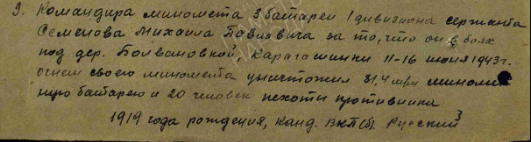 9. Командира миномета 3 батареи 1 дивизиона сержанта
Семенова Михаила Павловича за то, что он в боях
под дер. Болвановкой, 11-16 июля 1943 г.
огнем своего миномета уничтожил миномет
ную батарею и 20 человек пехоты противника
1919 года рождения, канд. ВКП(б), Русский